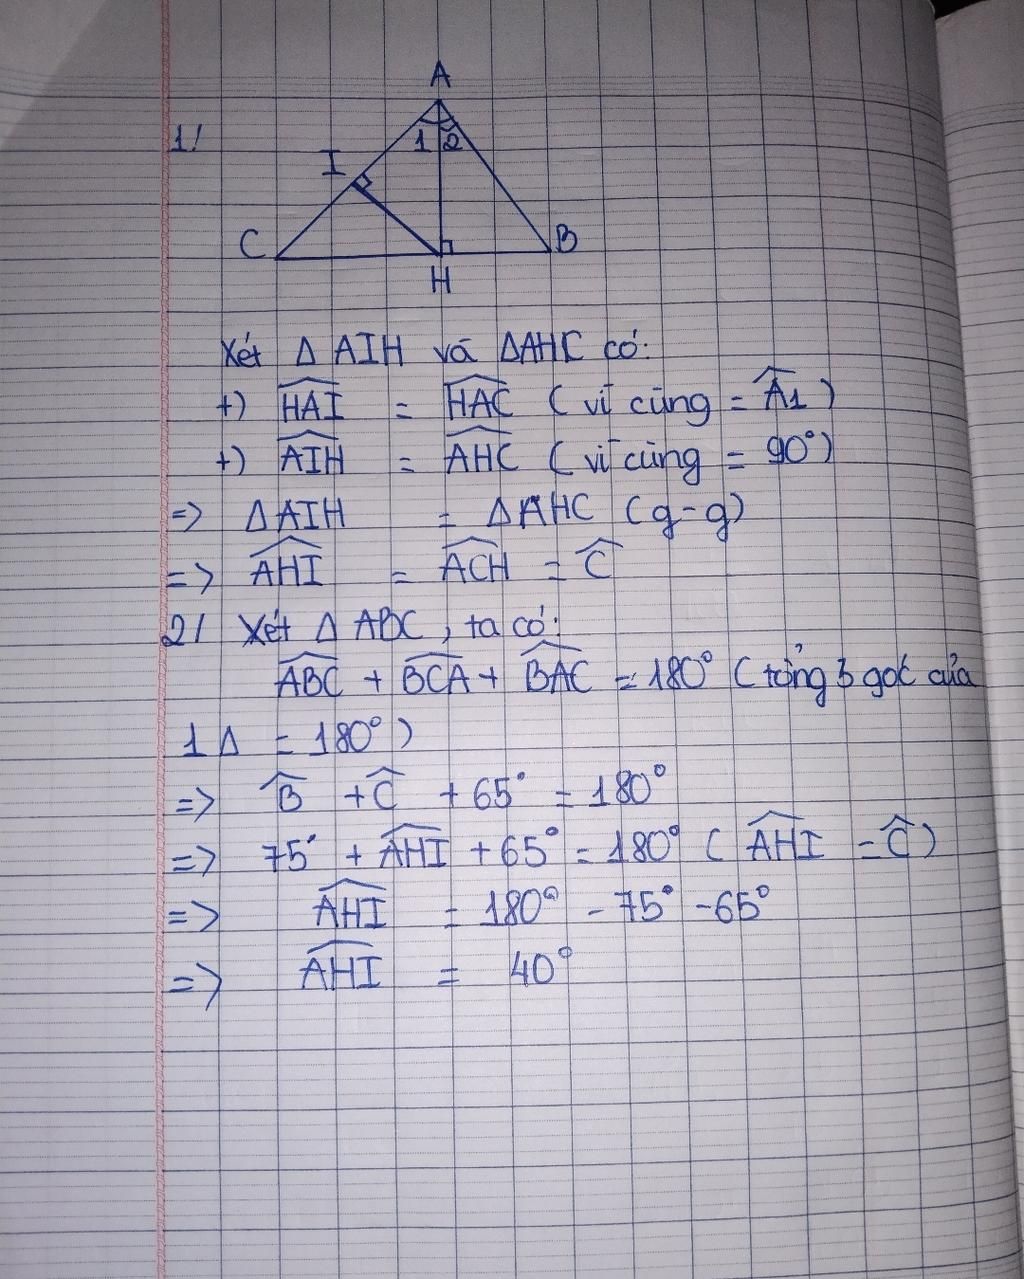 A
1/
1 2
I
C
B
H
Xét Δ AIH và ΔAHC có:
+) $\widehat{HAI}$ = $\widehat{HAC}$ ( vì cùng = $\widehat{A_1}$ )
+) $\widehat{AIH}$ = $\widehat{AHC}$ ( vì cùng = 90°)
=> ΔAIH = ΔAHC (g-g)
=> $\widehat{AHI}$ = $\widehat{ACH}$ = $\widehat{C}$
2/ Xét Δ ABC, ta có:
$\widehat{ABC}$ + $\widehat{BCA}$ + $\widehat{BAC}$ = 180° ( tổng 3 góc của
1 Δ = 180° )
=> $\widehat{B}$ + $\widehat{C}$ + 65° = 180°
=> 75° + $\widehat{AHI}$ + 65° = 180° ( $\widehat{AHI}$ = $\widehat{C}$ )
=> $\widehat{AHI}$ = 180° - 75° - 65°
=> $\widehat{AHI}$ = 40°